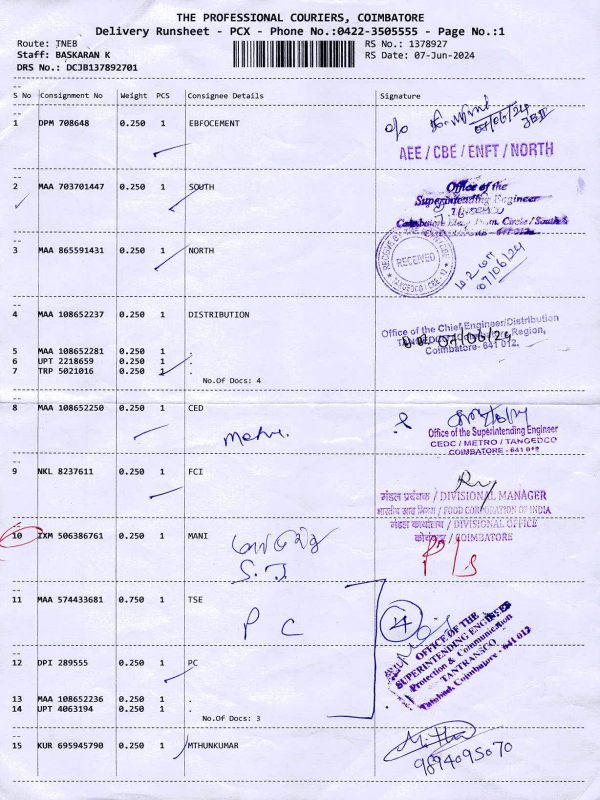 THE PROFESSIONAL COURIERS, COIMBATORE
Delivery Runsheet - PCX - Phone No.:0422-3505555 - Page No.:1
Route: TNEB RS No.: 1378927
Staff: BASKARAN K RS Date: 07-Jun-2024
DRS No.: DCJB137892701
S No Consignment No Weight PCS Consignee Details Signature
1 DPM 708648 0.250 1 EBFOCEMENT
07/06/24
AEE / CBE / ENFT / NORTH
2 MAA 703701447 0.250 1 SOUTH
Office of the
Superintending Engineer
3 MAA 865591431 0.250 1 NORTH
RECEIVED
07/06/24
4 MAA 108652237 0.250 1 DISTRIBUTION
Office of the Chief Engineer/Distribution
07/06/24
Region,
Coimbatore- 641 012.
5 MAA 108652281 0.250 1 .
6 UPT 2218659 0.250 1 .
7 TRP 5021016 0.250 1 .
No.Of Docs: 4
8 MAA 108652250 0.250 1 CED
Office of the Superintending Engineer
CEDC / METRO / TANGEDCO
COIMBATORE - 641 012
9 NKL 8237611 0.250 1 FCI
मंडल प्रबंधक / DIVISIONAL MANAGER
भारतीय खाद्य निगम / FOOD CORPORATION OF INDIA
मंडल कार्यालय / DIVISIONAL OFFICE
कोयंबत्तूर / COIMBATORE
10 IXM 506386761 0.250 1 MANI
11 MAA 574433681 0.750 1 TSE
P C
4
OFFICE OF THE
SUPERINTENDING ENGINEER
Protection & Communication
TANTRANSCO
Tatabad, Coimbatore - 641 012
12 DPI 289555 0.250 1 PC
13 MAA 108652236 0.250 1 .
14 UPT 4063194 0.250 1 .
No.Of Docs: 3
15 KUR 695945790 0.250 1 MTHUNKUMAR
9894095070